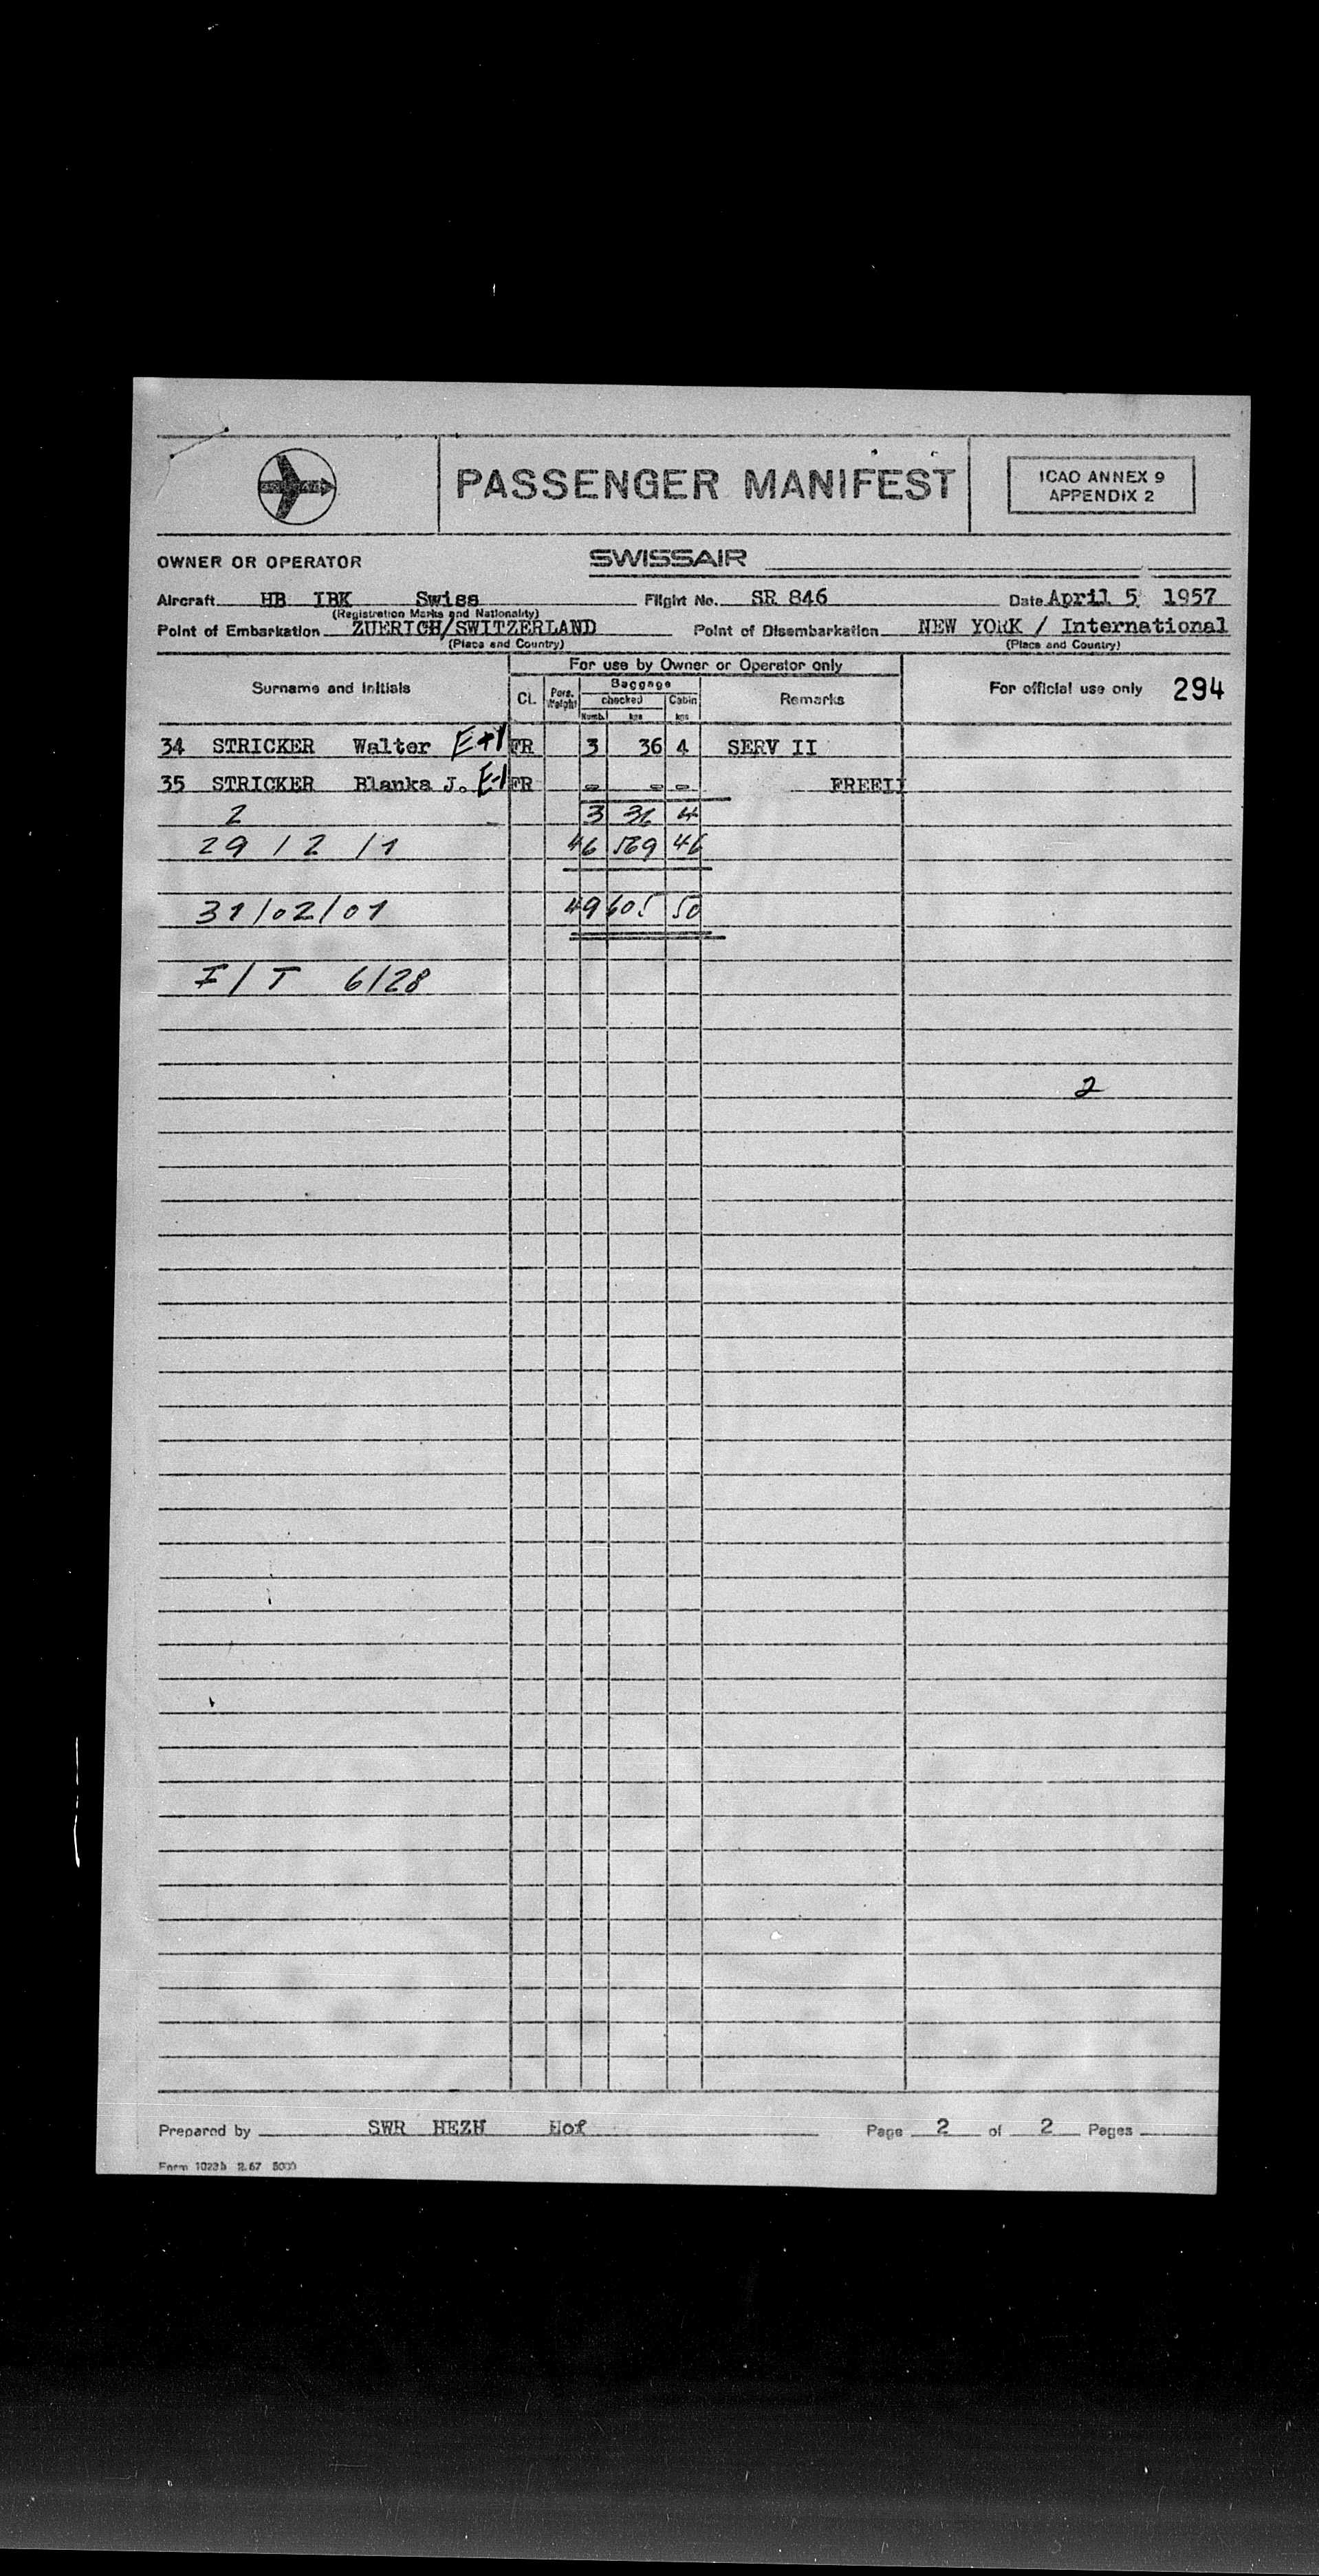 PASSENGER MANIFEST
ICAO ANNEX 9
APPENDIX 2
OWNER OR OPERATOR SWISSAIR
Aircraft HB IBK Swiss Flight No. SR 846 Date April 5 1957
(Registration Marks and Nationality)
Point of Embarkation ZUERICH/SWITZERLAND Point of Disembarkation NEW YORK / International
(Place and Country) (Place and Country)
For use by Owner or Operator only
Surname and Initials Cl. Pers. Weight Baggage Remarks For official use only 294
checked Cabin
Numb. kgs kgs
34 STRICKER Walter E+1 FR 3 36 4 SERV II
35 STRICKER Blanka J. E-1 FR - - - FREEII
2 3 36 4
29 / 2 / 1 46 569 46
31/02/01 49 605 50
I / T 6/28
2
Prepared by SWR HEZH Hof Page 2 of 2 Pages
Form 1023b 2.57 5000